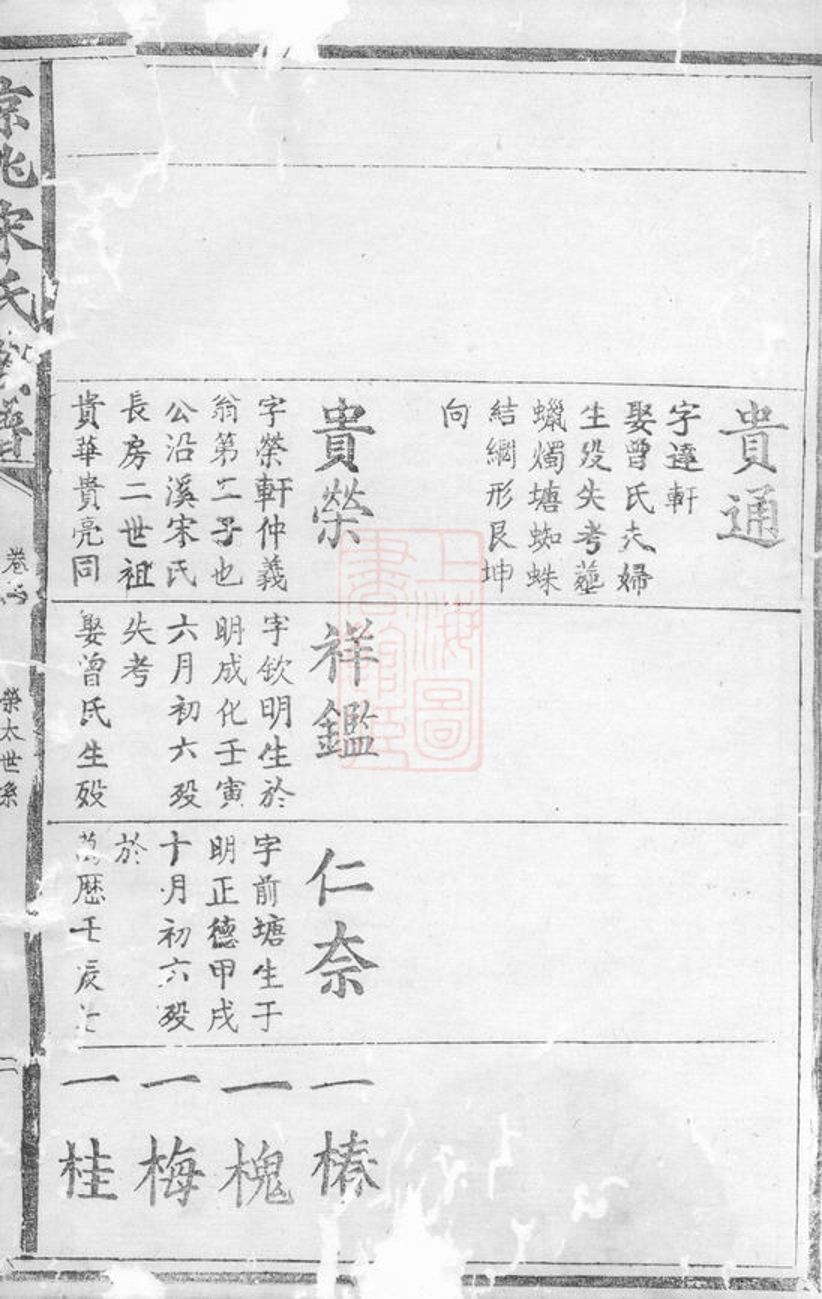 貴通
字達軒
娶曾氏夫婦
生殁失考塟
蠟燭塘蜘蛛
結網形艮坤
向
貴榮
字榮軒仲義
翁第二子也
公沿溪宋氏
長房二世祖
貴華貴亮同
祥鑑
字欽明生於
明成化壬寅
六月初六殁
失考
娶曾氏生殁
仁奈
字前塘生于
明正德甲戌
十月初六殁
於
萬歷壬辰
一椿
一槐
一梅
一桂
京兆宋氏
卷
榮太世系
二
上海圖
書館藏